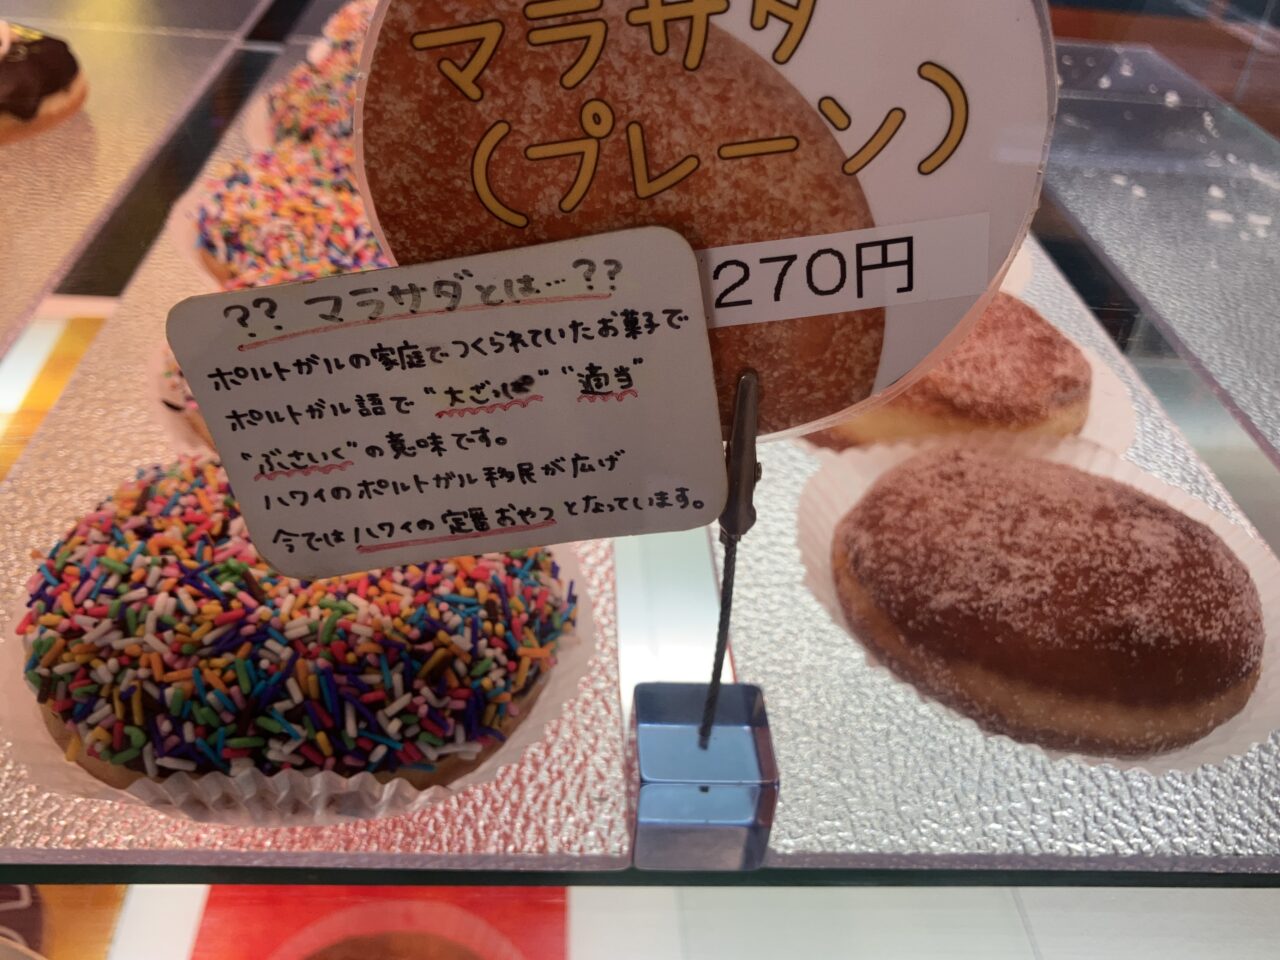 マラサダ
(プレーン)
270円
?? マラサダとは…??
ポルトガルの家庭でつくられていたお菓子で
ポルトガル語で"大ざっぱ" "適当"
"ぶさいく"の意味です。
ハワイのポルトガル移民が広げ
今ではハワイの定番おやつとなっています。